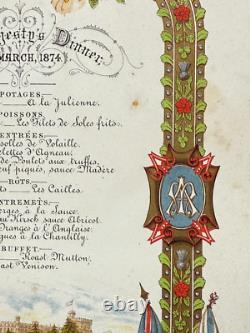 jesty's Dinner
MARCH, 1874
POTAGES.
A la Julienne.
POISSONS.
Les Filets de Soles frits.
ENTRÉES.
solles de Volaille.
elettes d'Agneau.
de Poulets aux truffes.
euf piqués, sauce Madère
RÔTS.
Les Cailles.
ENTREMETS.
erges à la Sauce
au Kirsch sauce Abricot.
ranges à l'Anglaise.
ques à la Chantilly.
BUFFET.
Roast Mutton.
ast Venison.